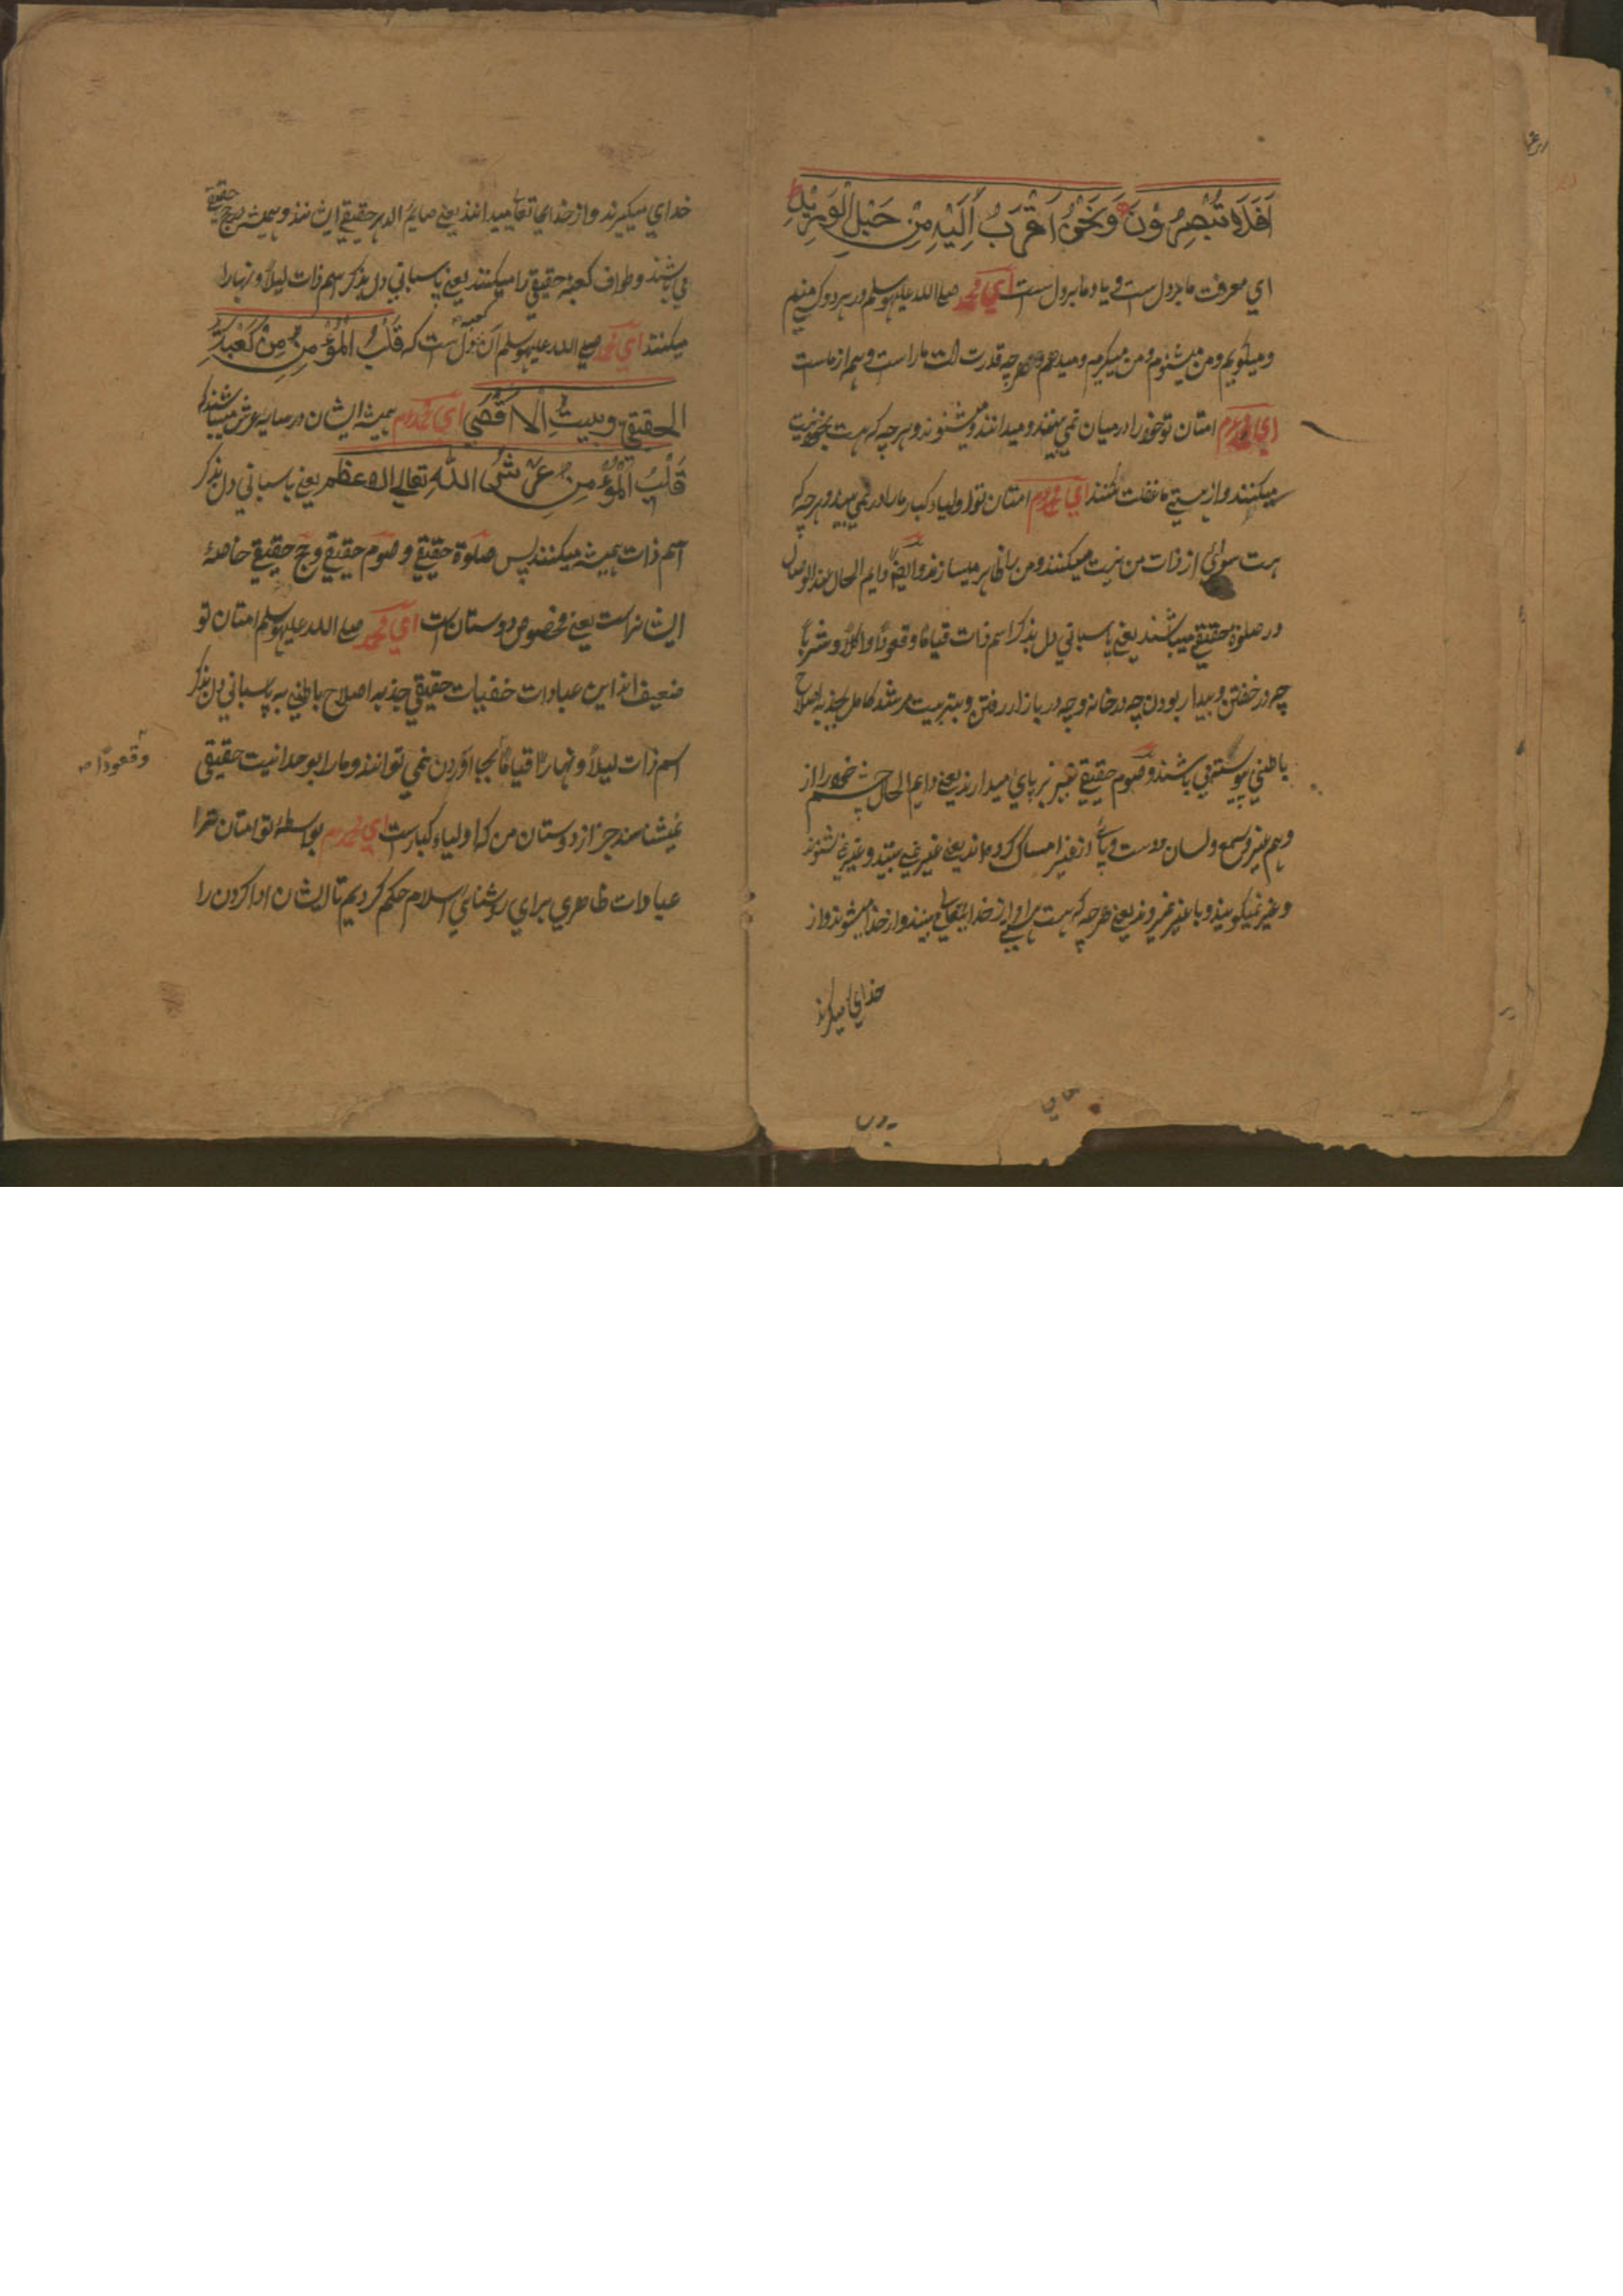 اَفَلَا تُبْصِرُوْنَ وَنَحْنُ اَقْرَبُ اِلَيْهِ مِنْ حَبْلِ الْوَرِيْدِ
اي معرفت ما بردل است و ياد ما بردل است اي محمد صلي الله عليه وسلم در هر دو كه منم
و ميگويم و من ميشنوم و من ميگيرم و ميدهم و هرچه قدرت است ما راست و هم از ماست
اي محمد م امتان تو خود را در ميان نمي بينند و ميدانند و ميشنوند و هرچه كه هست بخود نسبت
ميكنند و از هستي ما غفلت شند اي محمد م امتان تو اولياء كبار ما را در نمي بيند و هرچه كه
هست سوائي از ذات من نيست ميكنند و من را ظاهر ميسازند و ايضا دايم الحال عند الوصال
در صلوة حقيقي ميباشند يعني پاسباني دل بذكر اسم ذات قياما و قعودا و اكلا و شربا
چه در خفتن و بيدار بودن چه در خانه و چه در بازار رفتن و بتربيت مرشد كامل بجذبه اصلاح
باطني پيوسته مي باشند و صوم حقيقي نيز بر پاي ميدارند يعني دايم الحال چشم خود را از
و هم غير و سمع و لسان و دست و پاي از غير امساك كرده اند يعني غير نمي بينند و غير نمي شنوند
و غير نميگويند و با غير نميروند يعني هرچه كه هست از خدايتعالي ميبينند و از خدا ميشنوند و از
خداي ميگيرند
خداي ميگيرند و از خداي تعالي ميدانند يعني صايم الدهر حقيقي ايشانند و هميشه در حج حقيقي
مي باشند و طواف كعبهٔ حقيقي را ميكنند يعني پاسباني دل بذكر اسم ذات ليلا و نهارا
ميكنند اي محمد صلي الله عليه وسلم آن كعبه دل است كه قَلْبُ الْمُؤْمِنِ مِنْ كَعْبَةِ
الحقيقي وبيتُ الاقصي اي محمد م هميشه ايشان در سايه عرش ميباشند كه
قَلْبُ الْمُؤْمِنِ عَرْشُ اللهِ تعالي الاعظم يعني پاسباني دل بذكر
اسم ذات هميشه ميكنند پس صلوة حقيقي و صوم حقيقي و حج حقيقي خاصهٔ
ايشانراست يعني مخصوص دوستان است اي محمد صلي الله عليه وسلم امتان تو
ضعيف اند اين عبادات خفيات حقيقي جذبه اصلاح باطني به پاسباني دل بذكر
اسم ذات ليلا و نهارا قياما بجا آوردن نمي توانند و ما را بوحدانيت حقيقي
وقعودا صه
نميشناسند جز از دوستان من كه اولياء كبار است اي محمد م بواسطهٔ تو امتان ترا
عبادات ظاهري براي روشناي اسلام حكم كرديم تا ايشان ادا كردن را